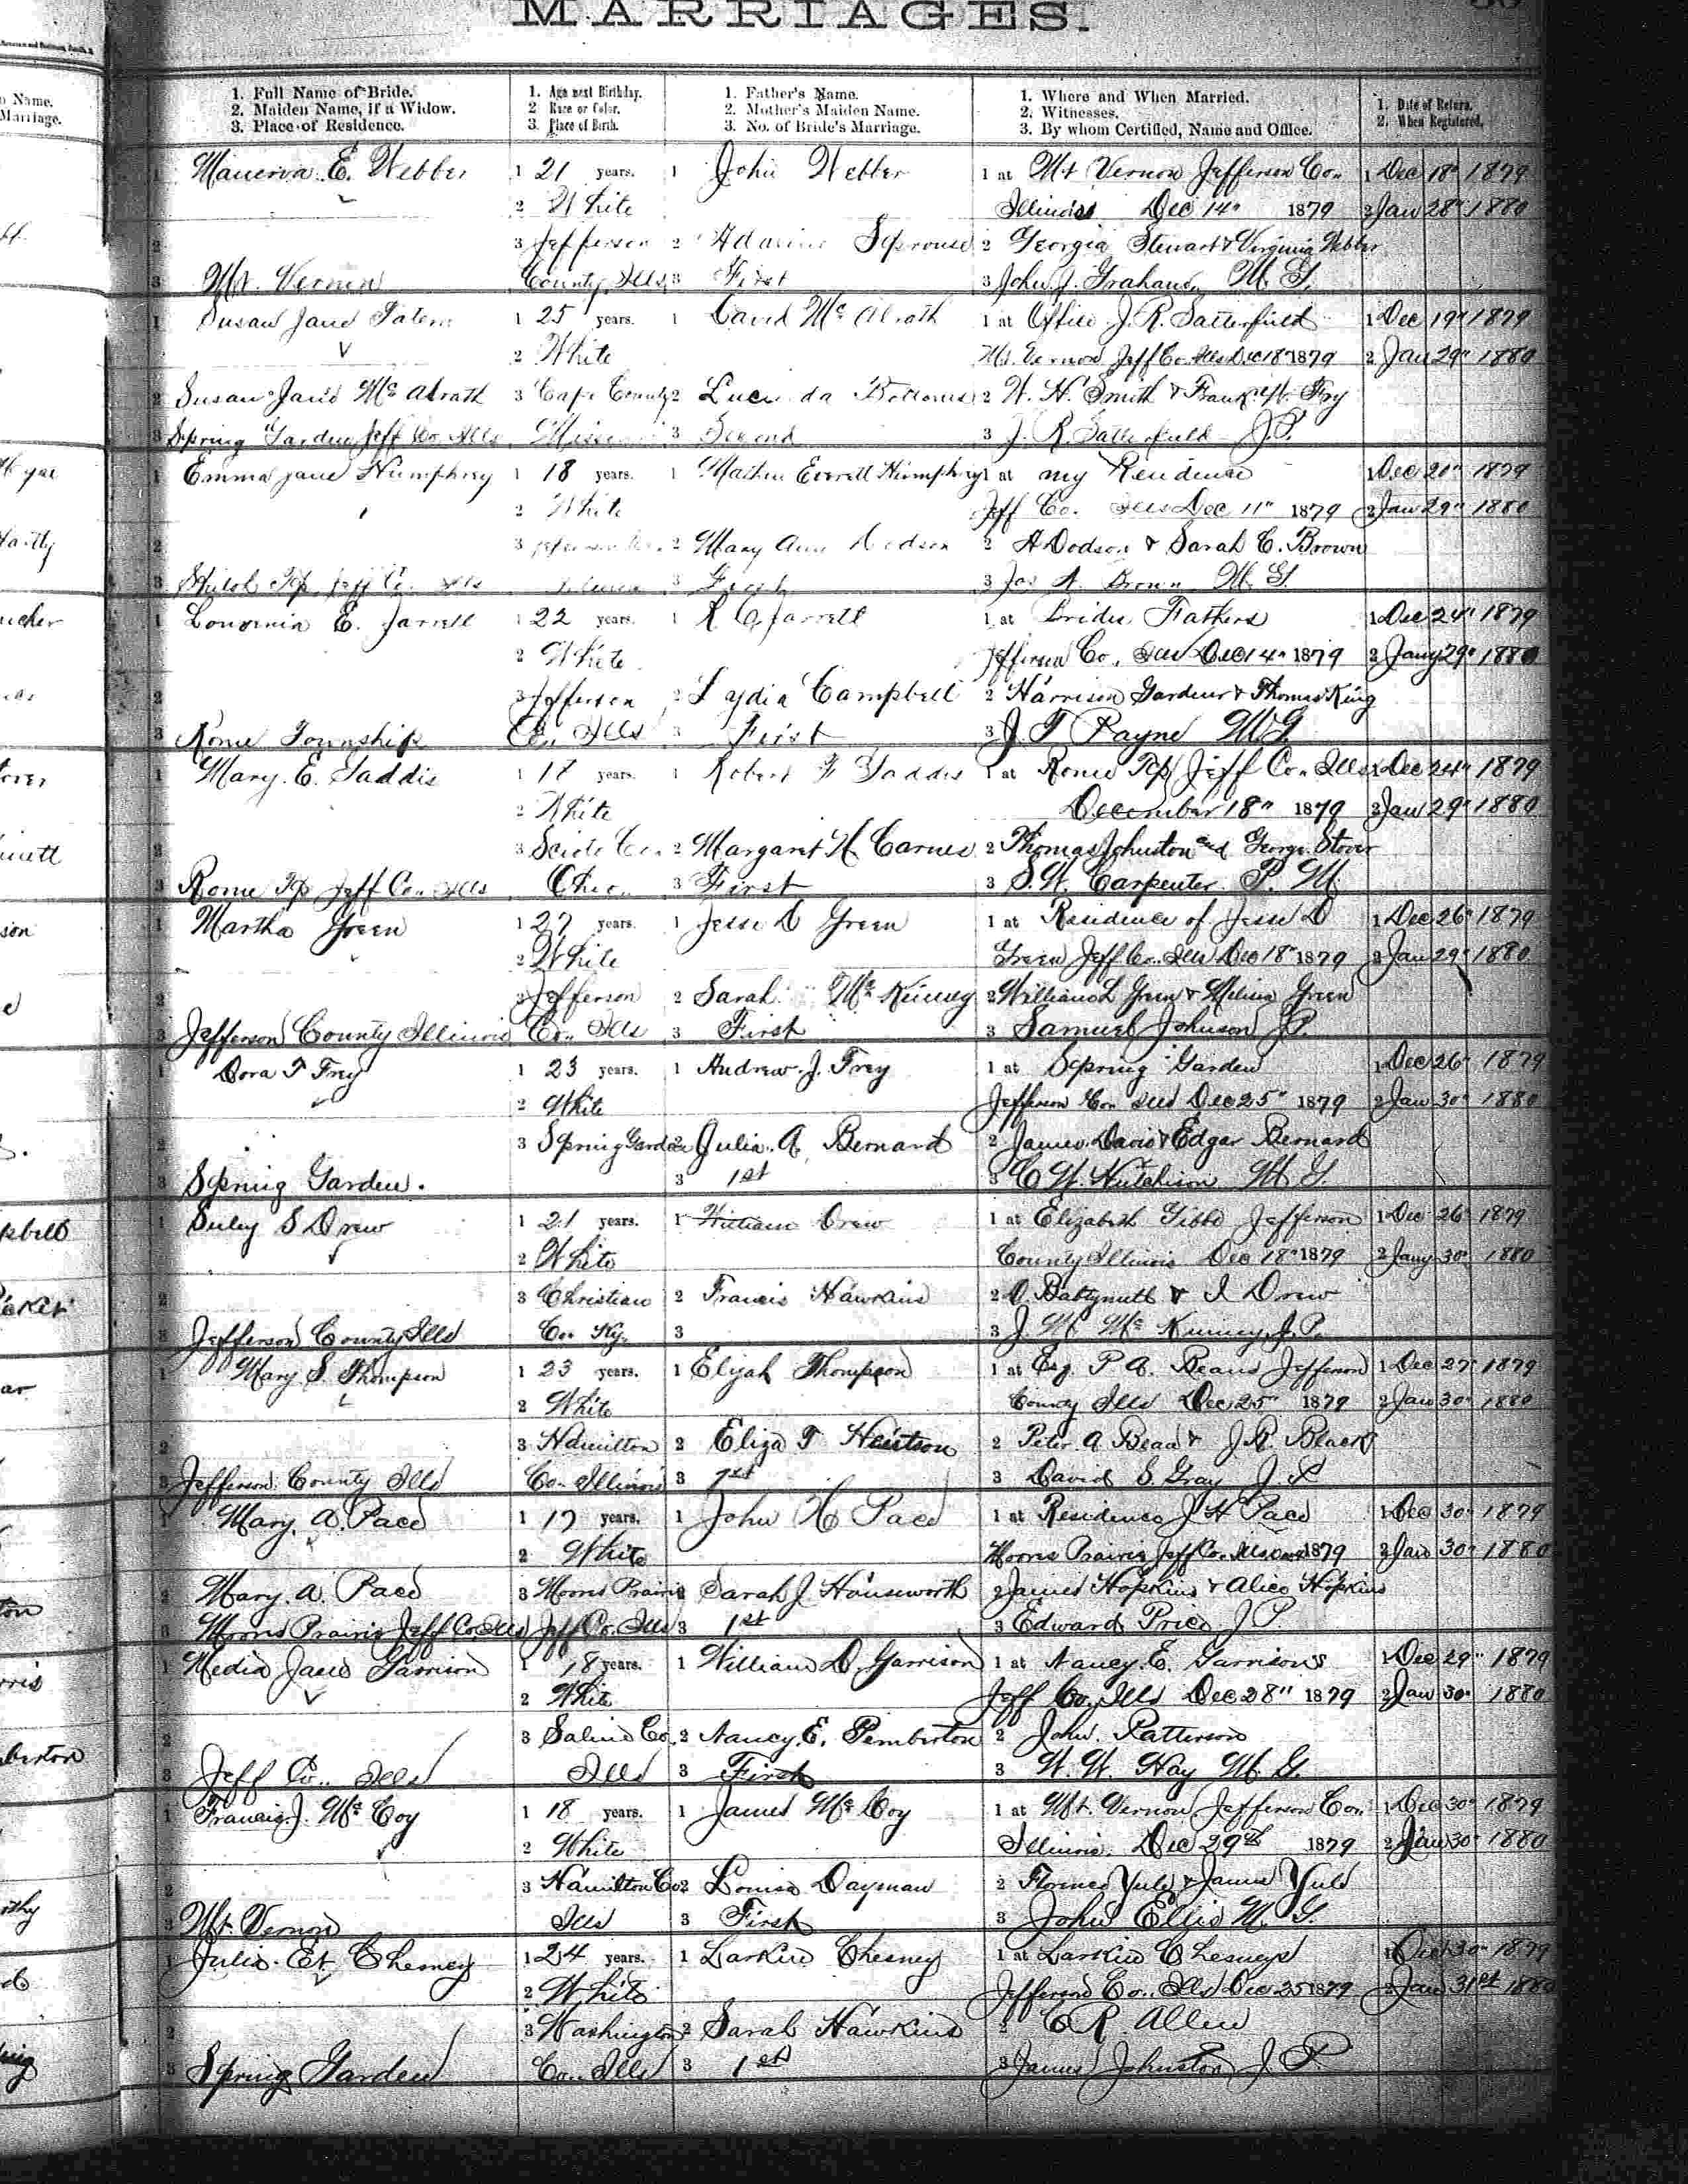 MARRIAGES.
1. Full Name of Bride. 2. Maiden Name, if a Widow. 3. Place of Residence.
1. Age next Birthday. 2 Race or Color. 3. Place of Birth.
1. Father's Name. 2. Mother's Maiden Name. 3. No. of Bride's Marriage.
1. Where and When Married. 2. Witnesses. 3. By whom Certified, Name and Office.
1. Date of Return. 2. When Registered.
1 E. Webber 1 21 years. 1 John Webber 1 at Mt Vernon Jefferson Co. 1 Dec 18" 1879
2 White Illinois Dec 14" 1879 2 Jan 28" 1880
2 3 Jefferson 2 Sprouse 2 Georgia Stewart & Virginia Webber
3 Mt. Vernon County, Ills 3 First 3 John J. Graham M. G.
1 Susan Jane 1 25 years. 1 David Mc 1 at Office J. R. Satterfield 1 Dec 19" 1879
2 White Mt. Vernon Jeff Co. Ills Dec 18" 1879 2 Jan 29" 1880
2 Susan Jane Mc 3 Cape County 2 Lucinda 2 W. H. Smith & Frank W. Fry
3 Spring Garden Jeff Co. Ills 3 Second 3 J. R. Satterfield J.P.
1 Emma Jane Humphrey 1 18 years. 1 Everett Humphrey 1 at my Residence 1 Dec 20" 1879
2 White Jeff Co. Ills Dec 11" 1879 2 Jan 29" 1880
2 3 2 Mary Ann Dodson 2 A Dodson & Sarah C. Brown
3 Tp. Jeff Co. Ills 3 First 3 Jas A. Brown M. G.
1 E. Jarrell 1 22 years. 1 R C Jarrell 1 at Brides Fathers 1 Dec 24" 1879
2 White Jefferson Co. Ills Dec 14" 1879 2 Jany 29" 1880
2 3 Jefferson 2 Lydia Campbell 2 Harrison Gardner & Thomas King
3 Rome Township Co. Ills 3 First 3 J. T Payne M G
1 Mary. E. Gaddis 1 years. 1 Robert F Gaddis 1 at Rome Tp Jeff Co. Ills 1 Dec 24" 1879
2 White December 18" 1879 2 Jan 29" 1880
2 3 Co. 2 Margaret 2 Thomas Johnston and George Stover
3 Rome Tp Jeff Co. Ills Ohio 3 First 3 S. W. Carpenter. P. M.
1 Martha Green 1 27 years. 1 Jesse D Green 1 at Residence of Jesse D 1 Dec 26" 1879
2 White Green Jeff Co. Ills Dec 18" 1879 2 Jan 29" 1880
2 3 Jefferson 2 Sarah Mc Kinney 2 William L Green & Melina Green
3 Jefferson County Illinois Co. Ills 3 First 3 Samuel Johnson J.P.
1 Dora T Frey 1 23 years. 1 Andrew. J. Frey 1 at Spring Garden 1 Dec 26" 1879
2 White Jefferson Co. Ills Dec 25" 1879 2 Jan 30" 1880
2 3 Spring Garden 2 Julia. A. Bernard 2 James Davis & Edgar Bernard
3 Spring Garden. 3 1st 3 C W. Hutchison M G.
1 S Drew 1 21 years. 1 William Drew 1 at Elizabeth Jefferson 1 Dec 26" 1879
2 White County Illinois Dec 18" 1879 2 Jany 30" 1880
2 3 Christian 2 Francis Hawkins 2 & I Drew
3 Jefferson County Ills Co. Ky. 3 3 J. W. Mc Kinney, J.P.
1 Mary S. Thompson 1 23 years. 1 Elijah Thompson 1 at Esq. P A. Jefferson 1 Dec 27" 1879
2 White County Ills Dec 25" 1879 2 Jan 30" 1880
2 3 Hamilton 2 Eliza T 2 Peter A & J. R. Black
3 Jefferson County Ills Co. Illinois 3 1st 3 David S. Gray J. P
1 Mary. A. Pace 1 17 years. 1 John H Pace 1 at Residence J H Pace 1 Dec 30" 1879
2 White Moores Prairie Jeff Co. Ills 1879 2 Jan 30" 1880
2 Mary. A. Pace 3 Moores Prairie 2 Sarah J. Hauseworth 2 James Hopkins & Alice Hopkins
3 Moores Prairie Jeff Co. Ills Jeff Co. Ills 3 1st 3 Edward Price J. P.
1 Media Jane Garrison 1 18 years. 1 William D. Garrison 1 at Nancy. E. Garrisons 1 Dec 29" 1879
2 White Jeff Co. Ills Dec 28" 1879 2 Jan 30" 1880
2 3 Saline Co. 2 Nancy. E. Pemberton 2 John. Patterson
3 Jeff Co. Ills Ills 3 First 3 W. W. Hay M. G.
1 Francis. J. Mc Coy 1 18 years. 1 James Mc Coy 1 at Mt. Vernon Jefferson Co. 1 Dec 30" 1879
2 White Illinois. Dec 29th 1879 2 Jan 30" 1880
2 3 Hamilton Co. 2 Louisa Dayman 2 Florence Yule & James Yule
3 Mt. Vernon Ills 3 First 3 John Ellis M. G.
1 Julia. Chesney 1 24 years. 1 Larkin Chesney 1 at Larkin Chesneys 1 Dec 30" 1879
2 White Jefferson Co. Ills Dec 25 1879 2 Jan 31st 1880
2 3 Washington 2 Sarah Hawkins 2 C R. Allen
3 Spring Garden Co. Ills 3 1st 3 James Johnston J. P.